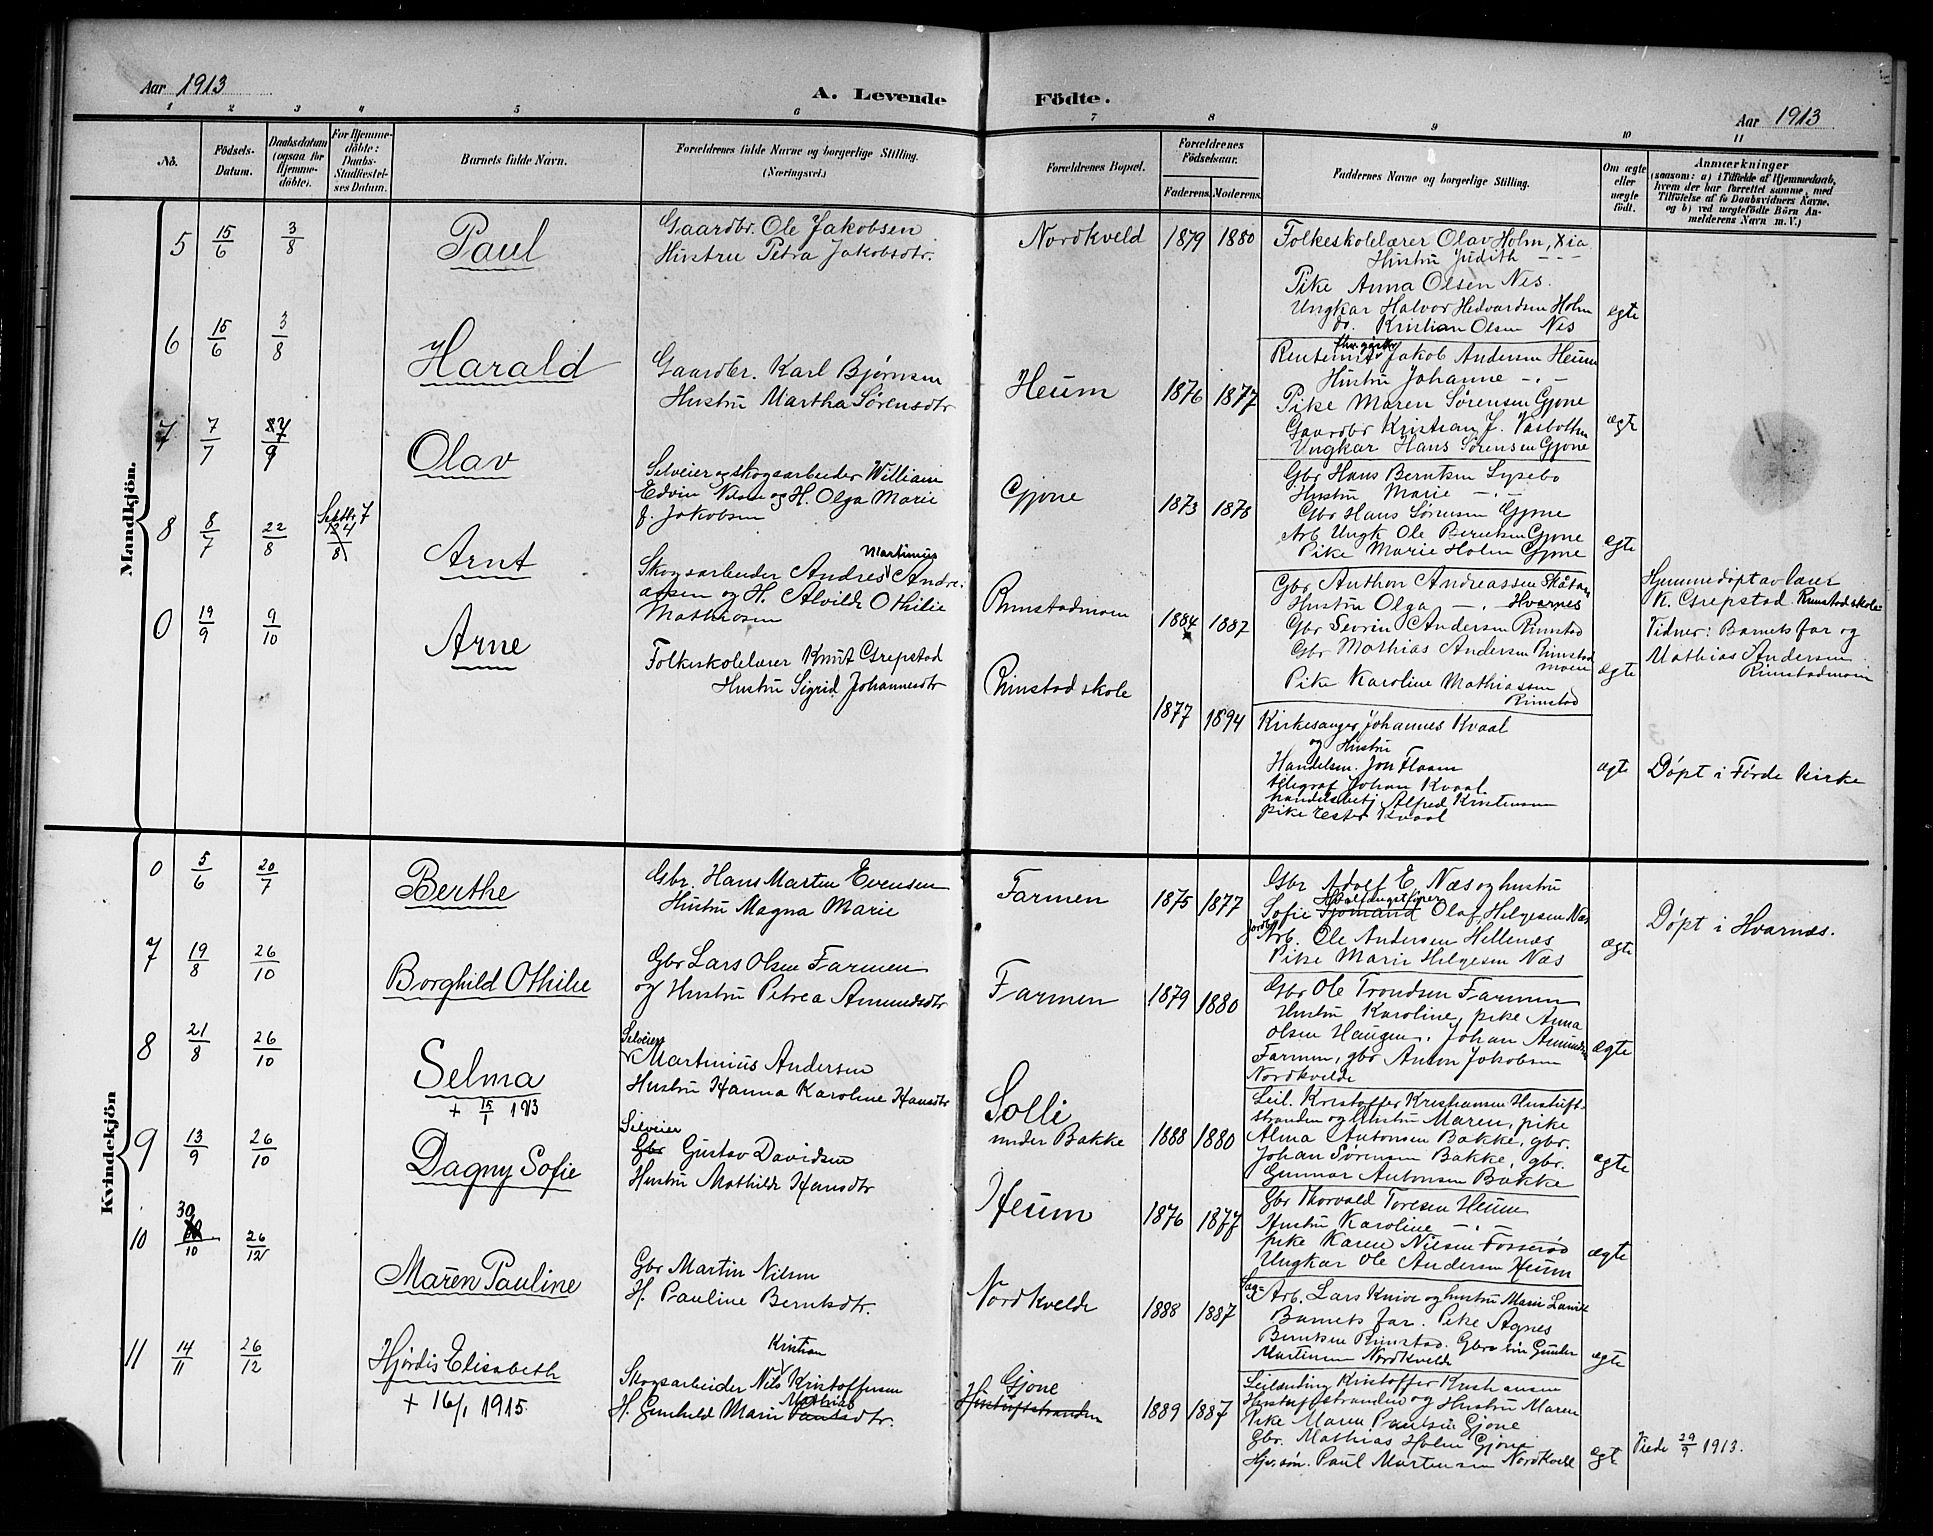 Aar 1913
A. Levende Födte.
Aar 1913
1 2 3 4 5 6 7 8 9 10 11
No.
Födsels-Datum.
Daabsdatum (ogsaa for Hjemme-döbte).
For Hjemme-döbte: Daabs-Stadfæstel-ses Datum.
Barnets fulde Navn.
Forældrenes fulde Navne og borgerlige Stilling. (Næringsvei.)
Forældrenes Bopæl.
Forældrenes Födselsaar.
Faderens. Moderens.
Faddernes Navne og borgerlige Stilling.
Om ægte eller uægte födt.
Anmærkninger
(saasom: a) i Tilfælde af Hjemmedaab,
hvem der har forrettet samme, med
Tilföielse af to Daabsvidners Navne,
og b) ved uægtefödte Börn An-
melderens Navn m. V.)
Mandkjön.
5 15/6 3/8 Paul
Gaardbr. Ole Jakobsen
Hustru Petra Jakobsdtr.
Nordkveld 1879 1880
Folkeskolelærer Olav Holm,
Hustru Judith - - -
Pike Anna Olsen Nes.
Ungkar Halvor Hedvardsen Holm
do. Kristian Olsen Nes
egte
6 15/6 3/8 Harald
Gaardbr. Karl Bjørnsen
Hustru Martha Sørensdtr
Heum 1876 1877
Jakob Andersen Heum
Hustru Johanne - . -
Pike Maren Sørensen Gjone
Gaardbr Kristian J. Vasbotten
Ungkar Hans Sørensen Gjone
ægt
7 7/7 Olav
Selveier og skogsarbeider William
Edvin Nilsen og H. Olga Marie
f. Jakobsen
Gjone 1873 1878
Gbr Hans Berntsen Lysebo
Hustru Marie - . -
Gbr Hans Sørensen Gjone
Arb. Ungk Ole Berntsen Gjone
Pike Marie Holm Gjone
egte
8 8/7 22/8 Septbr 7
Arnt
Martinius
Skogsarbeider Andres Andre-
assen og H. Alvilde Othilie
Mathiasen
Rimstadmoen 1884 1887
Gbr Anthon Andreassen
Hustru Olga - . Hvarnes
Gbr Severin Andersen Rimstad
Gbr Mathias Andersen Rimstad
moen
Pike Karoline Mathiassen
Rimstad
ægte
Hjemmedøpt av lærer
K. Grepstad Rimstad skole
Vidner: Barnets far og
Mathias Andersen
Rimstadmoen
0 19/9 9/10 Arne
Folkeskolelærer Knut Grepstad
Hustru Sigrid Johannesdtr
Rimstad skole
1877 1894
Kirkesanger Johannes Kvaal
og Hustru
Handelsm. Jon Flaam
telegraf Johan Kvaal
handelsbetj Alfred Kristensen
pike Ester Kvaal
ægte
Døpt i Førde kirke
Kvindekjön
0 5/6 20/7 Berthe
Gbr. Hans Martin Evensen
Hustru Magna Marie
Farmen 1875 1877
Gbr Adolf E. Næs og hustru
Hvalfangstfører
Sofie Sjømand Olaf Helgesen Næs
Arb. Ole Andersen Hellenæs
Pike Marie Helgesen Næs
ægte
Døpt i Hvarnæs.
7 19/8 26/10 Borghild Othilie
Gbr Lars Olsen Farmen
og Hustru Petrea Amundsdtr
Farmen 1879 1880
Gbr Ole Trondsen Farmen
Hustru Karoline, pike Anna
Olsen Haugen, Johan Amundsen
Farmen, gbr Anton Jakobsen
Nordkvelde
ægte
8 21/8 26/10 Selma
+ 15/1 1913
Selveier
Martinius Andersen
Hustru Hanna Karoline Hansdtr
Solli
under Bakke 1888 1880
Leil. Kristoffer Kristiansen Hustuft-
stranden og hustru Maren, pike
Alma Antonsen Bakke, gbr.
Johan Sørensen Bakke, gbr.
Gunnar Antonsen Bakke
ægte
9 13/9 26/10 Dagny Sofie
Selveier
Gbr Gustav Davidsen
Hustru Mathilde Hansdtr
Heum 1876 1877
Gbr Thorvald Toresen Heum
Hustru Karoline - . -
pike Karen Nilsen Fosserød
Ungkar Ole Andersen Heum
ægte
10 30/10 26/12 Maren Pauline
Gbr Martin Nilsen
H. Pauline Berntsdtr.
Nordkvelde 1888 1887
Arb. Lars Knive og hustru Marie
Barnets far. Pike Agnes
Berntsen Rimstad. Gbrs
Martinsen Nordkvelde
ægte
11 14/11 26/12 Hjørdis Elisabeth
+ 16/1 1915.
Kristian
Skogsarbeider Nils Kristoffersen
Mathias
H. Gunhild Marie Paulsdtr.
Gjone
Hustuftstranden 1889 1887
Leilending Kristoffer Kristiansen
Hustuftstranden og Hustru Maren
Pike Maren Paulsen Gjone
Gbr. Mathias Holm Gjone
Paul Martensen Nordkveld
egte
Viede 29/9 1913.